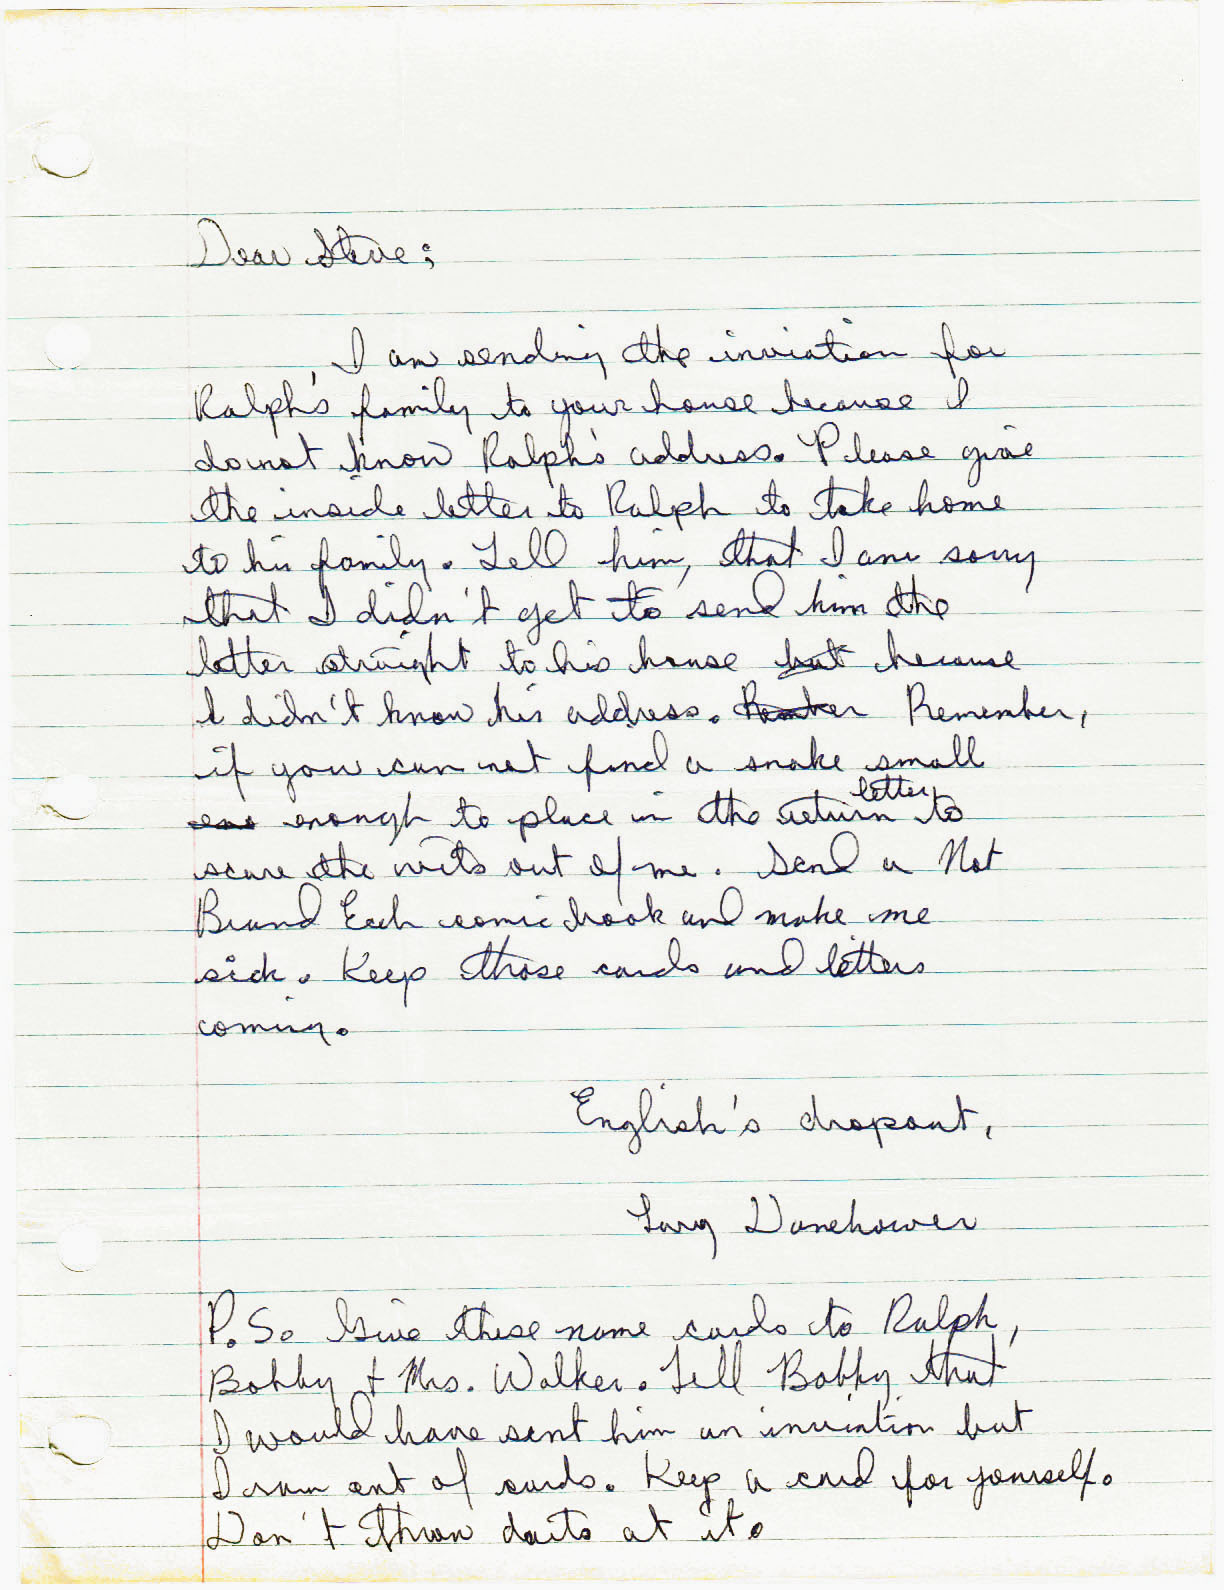 Dear Steve;
I am sending the inviation for
Ralph's family to your house because I
do not know Ralph's address. Please give
the inside letter to Ralph to take home
to his family. Tell him, that I am sorry
that I didn't get to send him the
letter straight to his house but because
I didn't know his address. Remember,
if you can not find a snake small
letter
enough to place in the return to
scare the wits out of me. Send a Not
Brand Ech comic book and make me
sick. Keep those cards and letters
coming.
English's dropout,
Gary Danehower
P.S. Give these name cards to Ralph,
Bobby + Mrs. Walker. Tell Bobby that
I would have sent him an inviation but
I run out of cards. Keep a card for yourself.
Don't throw darts at it.